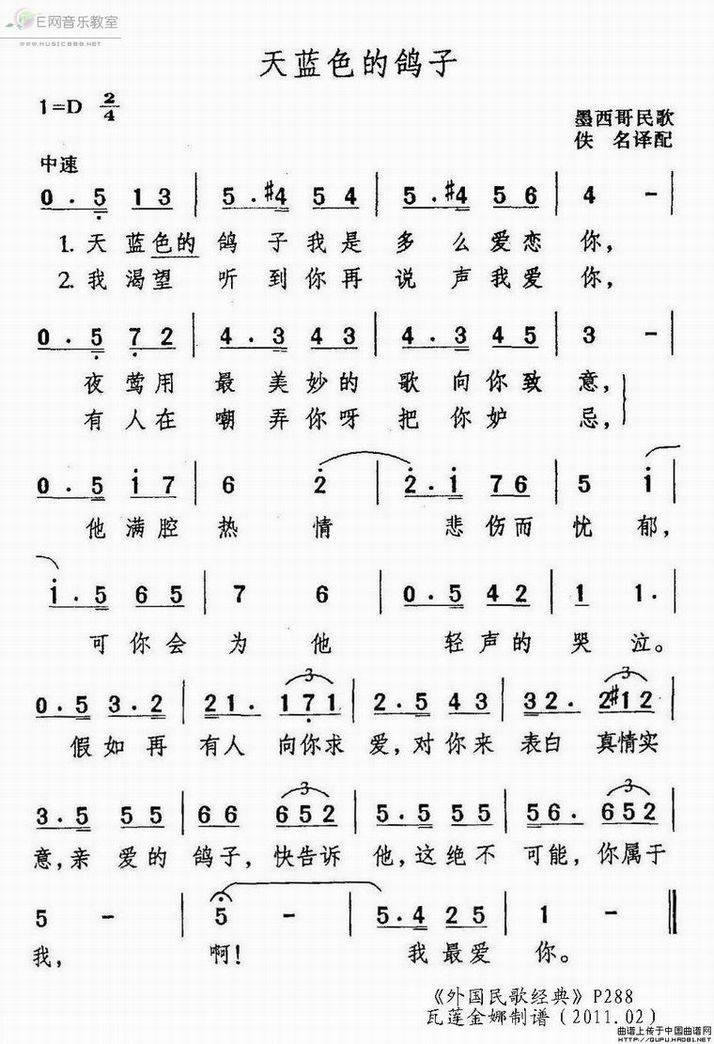 E网音乐教室
www.music888.net
天蓝色的鸽子
1=D 2/4
墨西哥民歌
佚 名译配
中速
0.5 13 | 5.#4 54 | 5.#4 56 | 4 – |
1.天蓝色的 鸽 子我是 多 么爱恋 你,
2.我渴望 听 到你再 说 声我爱 你,
0.5 72 | 4.3 43 | 4.3 45 | 3 – |
夜莺用 最 美妙的 歌 向你致 意,
有人在 嘲 弄你呀 把 你妒 忌,
0.5 i7 | 6 2 | 2.i 76 | 5 i |
他满腔 热 情 悲伤而 忧 郁,
i.5 65 | 7 6 | 0.5 42 | 1 1. |
可你会 为 他 轻声的 哭 泣。
0.5 3.2 | 21. 3 171 | 2.5 43 | 32. 3 2#12 |
假如再 有人 向你求 爱,对你来 表白 真情实
3.5 55 | 66 3 652 | 5.5 55 | 56. 3 652 |
意,亲 爱的 鸽子,快告诉 他,这绝不 可能,你属于
5 – | 5 – | 5.4 25 | 1 – ‖
我, 啊! 我最爱 你。
《外国民歌经典》P288
瓦莲金娜制谱(2011.02)
曲谱上传于中国曲谱网
http://QUPU.HAO81.NET